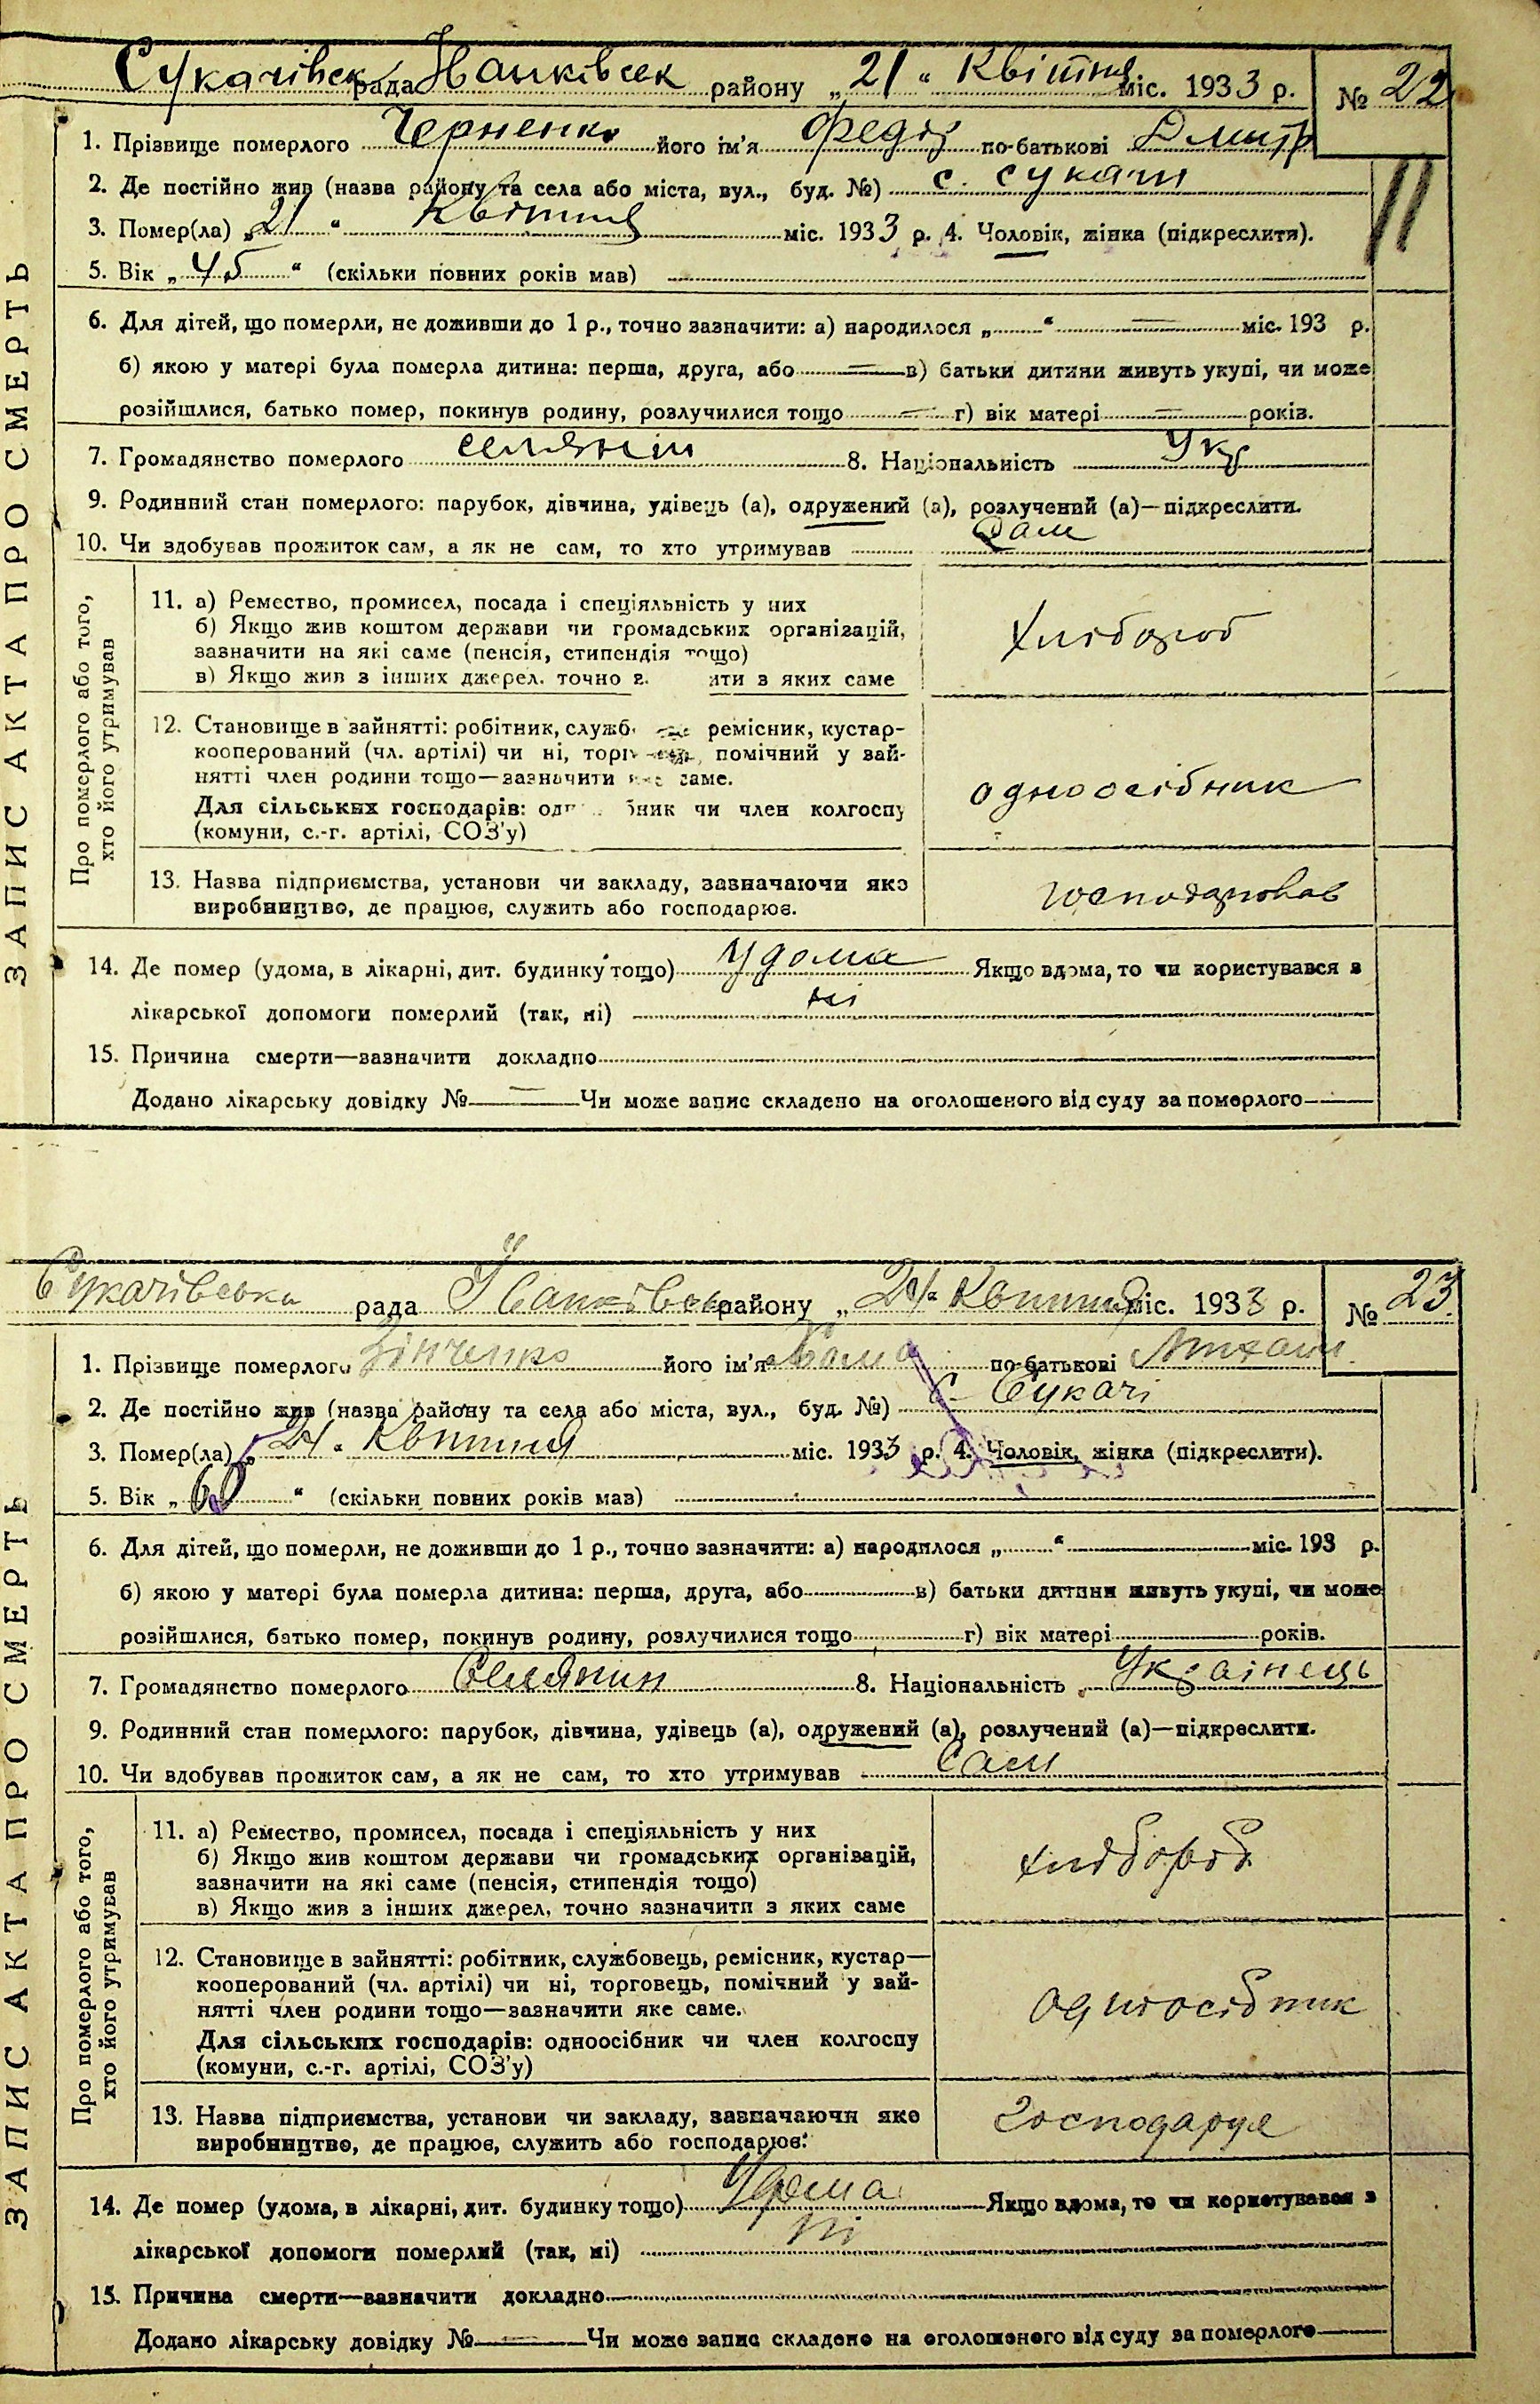 Сукачівськ рада Іванківськ району „21“ Квітня міс. 1933 р. № 22
1. Прізвище померлого Черненко його ім'я Федір по-батькові Дмитр
2. Де постійно жив (назва району та села або міста, вул., буд. №) с. Сукачи
3. Помер(ла) „21“ Квітня міс. 1933 р. 4. Чоловік, жінка (підкреслити).
5. Вік „45“ (скільки повних років мав)
6. Для дітей, що померли, не доживши до 1 р., точно зазначити: а) народилося „ “ — міс. 193 р.
б) якою у матері була померла дитина: перша, друга, або — в) батьки дитини живуть укупі, чи може
розійшлися, батько помер, покинув родину, розлучилися тощо — г) вік матері — років.
7. Громадянство померлого селянин 8. Національність Укр
9. Родинний стан померлого: парубок, дівчина, удівець (а), одружений (а), розлучений (а)—підкреслити.
10. Чи здобував прожиток сам, а як не сам, то хто утримував Сам
ЗАПИС АКТА ПРО СМЕРТЬ
Про померлого або того,
хто його утримував
11. а) Ремество, промисел, посада і спеціяльність у них
б) Якщо жив коштом держави чи громадських організацій,
зазначити на які саме (пенсія, стипендія тощо)
в) Якщо жив з інших джерел, точно з ити з яких саме
Хлібороб
12. Становище в зайнятті: робітник, служб ремісник, кустар-
кооперований (чл. артілі) чи ні, торг помічний у зай-
нятті член родини тощо—зазначити саме.
Для сільських господарів: од бник чи член колгоспу
(комуни, с.-г. артілі, СОЗ'у)
одноосібник
13. Назва підприємства, установи чи закладу, зазначаючи яко
виробництво, де працює, служить або господарює.
господарював
14. Де помер (удома, в лікарні, дит. будинку тощо) Удома Якщо вдома, то чи користувався з
лікарської допомоги померлий (так, ні) ні
15. Причина смерти—зазначити докладно
Додано лікарську довідку № — Чи може запис складено на оголошеного від суду за померлого
Сукачівська рада Іванківськ району „24“ Квітня міс. 1933 р. № 23
1. Прізвище померлого Зінченко його ім'я по-батькові
2. Де постійно жив (назва району та села або міста, вул., буд. №) с. Сукачі
3. Помер(ла) „24“ Квітня міс. 1933 р. 4. Чоловік, жінка (підкреслити).
5. Вік „60“ (скільки повних років мав)
6. Для дітей, що померли, не доживши до 1 р., точно зазначити: а) народилося „ “ міс. 193 р.
б) якою у матері була померла дитина: перша, друга, або в) батьки дитини живуть укупі, чи може
розійшлися, батько помер, покинув родину, розлучилися тощо г) вік матері років.
7. Громадянство померлого Селянин 8. Національність Українець
9. Родинний стан померлого: парубок, дівчина, удівець (а), одружений (а), розлучений (а)—підкреслити.
10. Чи здобував прожиток сам, а як не сам, то хто утримував Сам
ЗАПИС АКТА ПРО СМЕРТЬ
Про померлого або того,
хто його утримував
11. а) Ремество, промисел, посада і спеціяльність у них
б) Якщо жив коштом держави чи громадських організацій,
зазначити на які саме (пенсія, стипендія тощо)
в) Якщо жив з інших джерел, точно зазначити з яких саме
хлібороб
12. Становище в зайнятті: робітник, службовець, ремісник, кустар—
кооперований (чл. артілі) чи ні, торговець, помічний у зай-
нятті член родини тощо—зазначити яке саме.
Для сільських господарів: одноосібник чи член колгоспу
(комуни, с.-г. артілі, СОЗ'у)
одноосібник
13. Назва підприємства, установи чи закладу, зазначаючи яко
виробництво, де працює, служить або господарює.
господарує
14. Де помер (удома, в лікарні, дит. будинку тощо) Удома Якщо вдома, то чи користувався з
лікарської допомоги померлий (так, ні) ні
15. Причина смерти—зазначити докладно
Додано лікарську довідку № — Чи може запис складено на оголошеного від суду за померлого